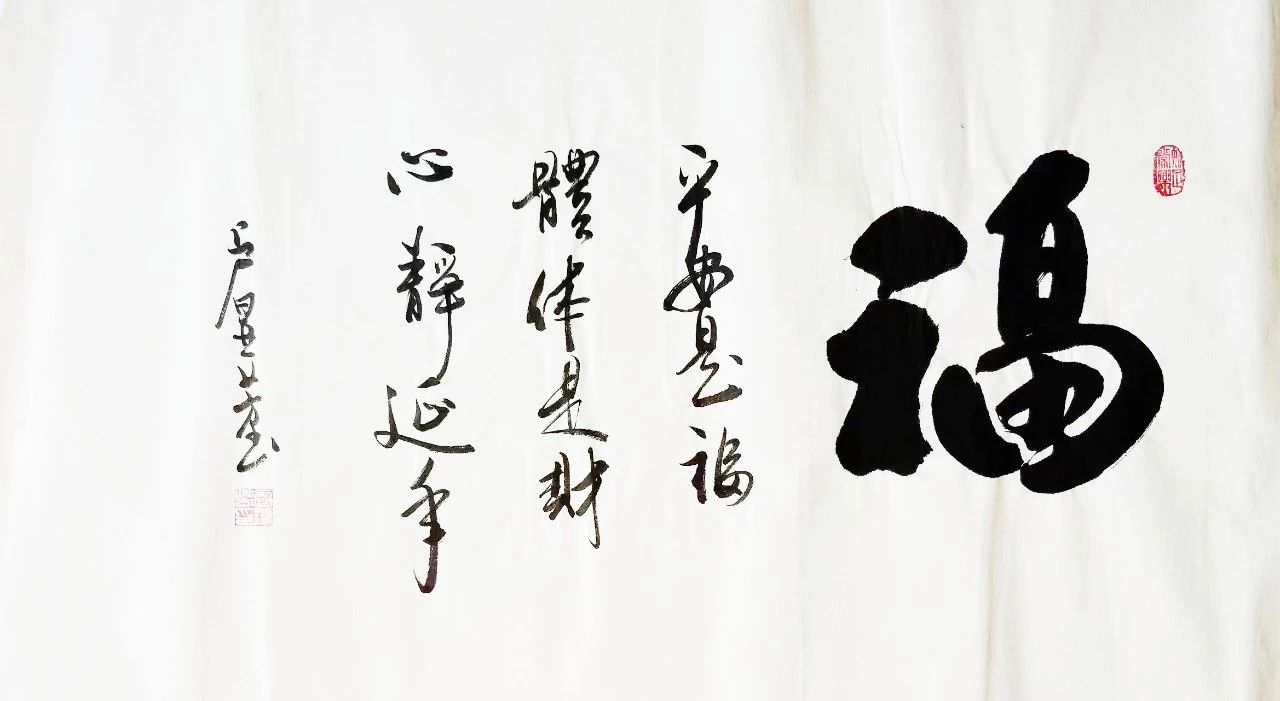 福
平安是福
體体是財
心靜延年